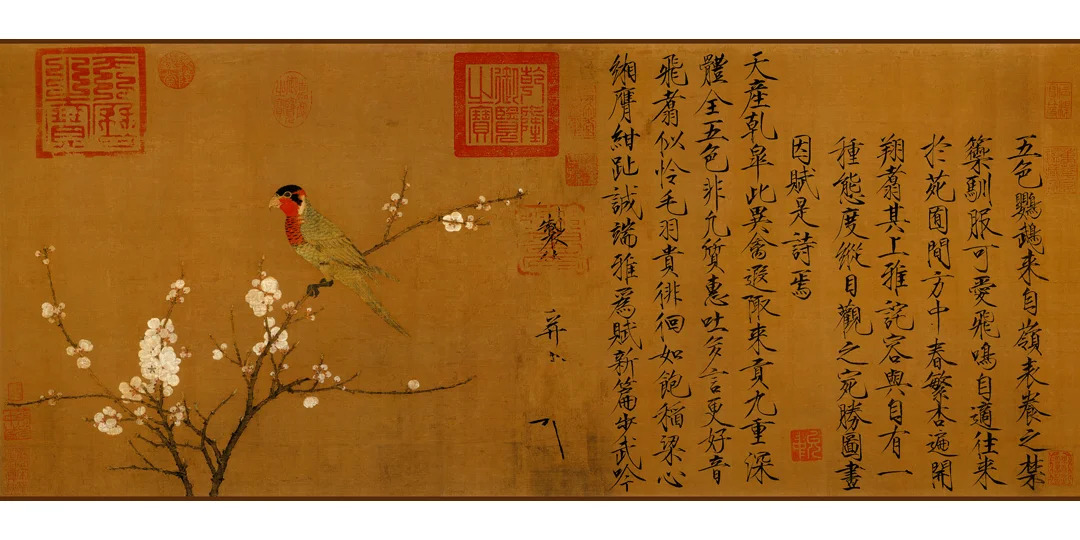 五色鸚鵡來自嶺表養之禁
籞馴服可愛飛鳴自適往來
於苑囿間方中春繁杏遍開
翔翥其上雅詫容與自有一
種態度縱目觀之宛勝圖畫
因賦是詩焉
天產乾皋此異禽遐陬來貢九重深
體全五色非凡質惠吐多言更好音
飛翥似怜毛羽貴徘徊如飽稻粱心
緗膺紺趾誠端雅為賦新篇步武吟
製
并
乾隆御覽之寶